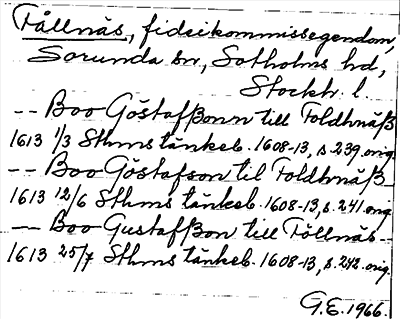 Fållnäs, fideikommissegendom,
Sorunda sn, Sotholms hd,
Stockh. l.
-- Boo Göstafßonn till Foldhnäß
1613 1/3 Sthms tänkeb. 1608-13, s. 239 orig.
-- Boo Göstafson til Foldhnäß
1613 12/6 Sthms tänkeb. 1608-13, s. 241 orig.
-- Boo Gustafßon till Föllnäs
1613 25/7 Sthms tänkeb. 1608-13, s. 242 orig.
G.E. 1966.